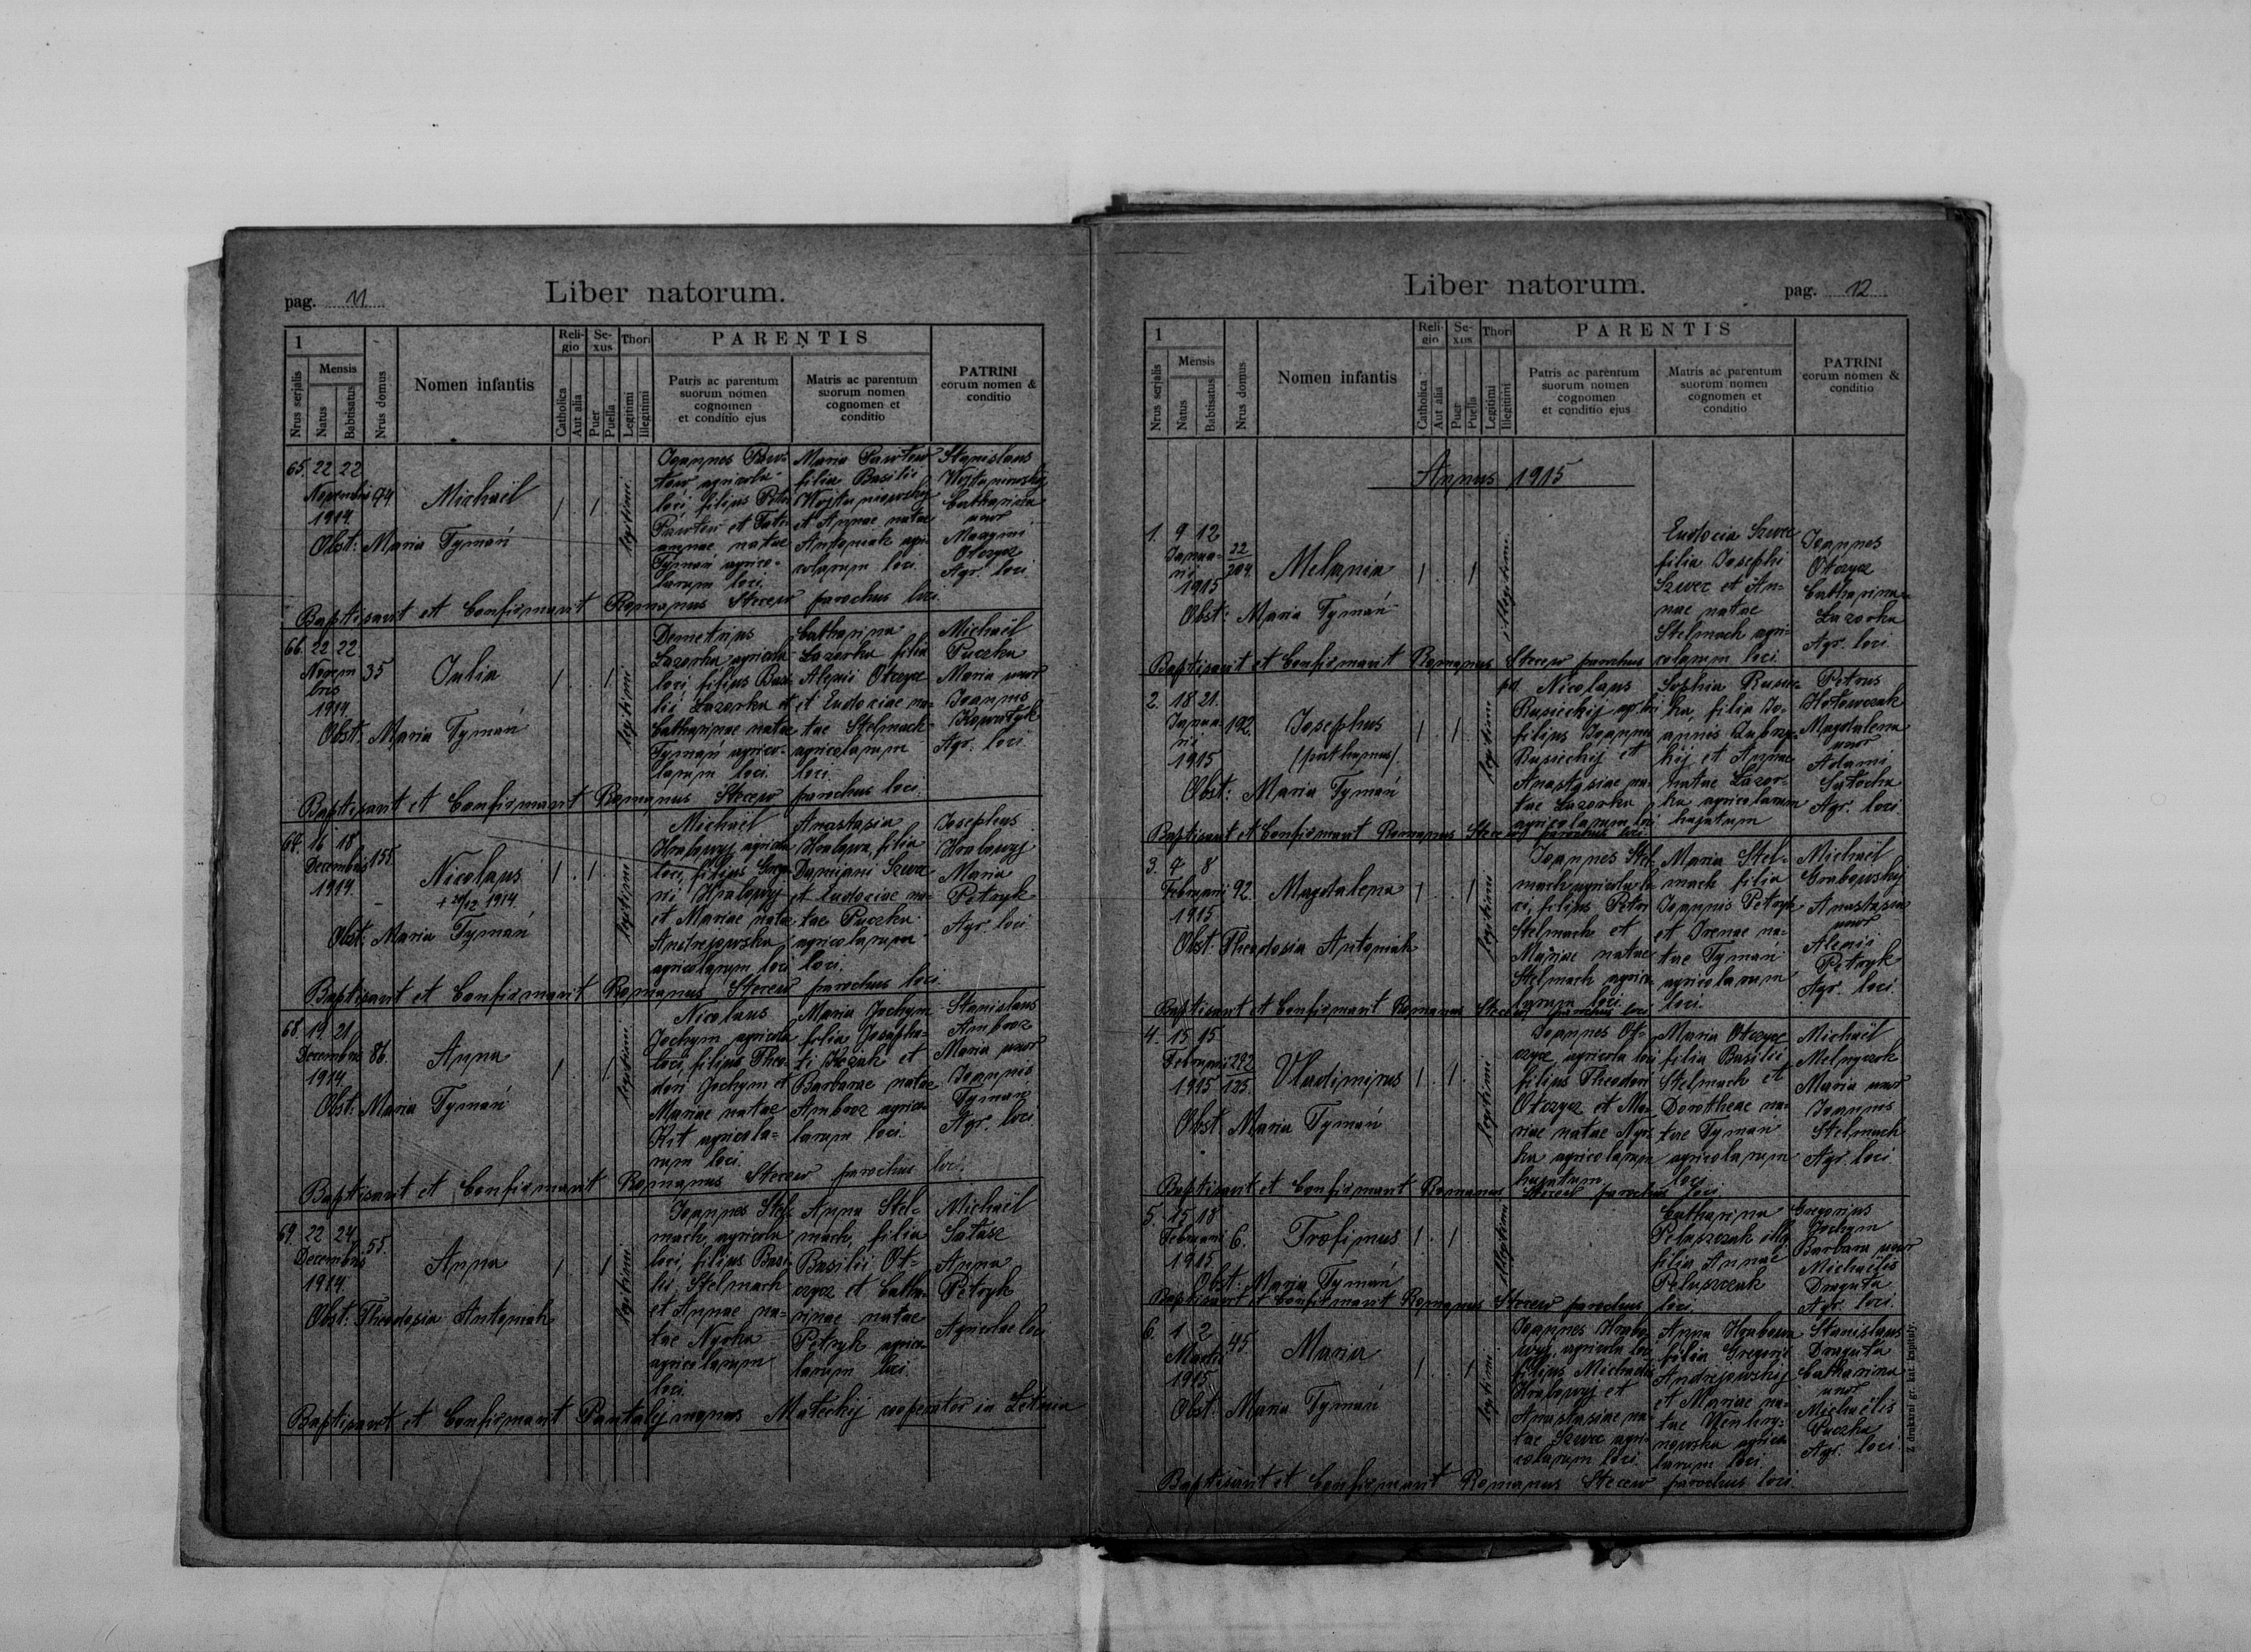 pag. 11
Liber natorum.
1
Nrus serjalis
Mensis
Natus
Babtisatus
Nrus domus
Nomen infantis
Religio
Catholica
Aut alia
Sexus
Puer
Puella
Thori
Legitimi
Illegitimi
PARENTIS
Patris ac parentum
suorum nomen
cognomen
et conditio ejus
Matris ac parentum
suorum nomen
cognomen et
conditio
PATRINI
eorum nomen &
conditio
65. 22 22
Novembris 94.
1914.
Michaël
legitimi
Obst: Maria Tymań
Joannes Paw-
łow agricola
loci, filius Petri
Pawłow et Tati-
annae natae
Tymań agrico-
larum loci.
Maria Pawłow
filia Basilii
et Annae natae
Antoniak agri-
colarum loci.
Stanislaus
Catharina
uxor
Otczycz
Agr. loci
Baptisavit et Confirmavit Romanus Stecew parochus loci.
66. 22 22
Novem-
bris
1914
35
Julia
legitimi
Obst. Maria Tymań
Demetrius
Lazorka agricola
loci, filius Basi-
lii Lazorka et
Catharinae natae
Tymań agrico-
larum loci.
Catharina
Lazorka filia
Alexii Otczycz
et Eudociae na-
tae Stelmach
agricolarum
loci.
Michaël
Puczka
Maria uxor
Joannis
Agr. loci
Baptisavit et Confirmavit Romanus Stecew parochus loci.
67. 16 18
Decembris 158.
1914.
Nicolaus
1914.
legitimi
Obst: Maria Tymań
Michaël
Hrabowyj agricola
loci, filius
Hrabowyj
et Mariae natae
Andrejowska
agricolarum loci
Anastasia
Hrabowa, filia
Damiani Szwec
et Eudociae na-
tae Puczka
agricolarum
loci.
Josephus
Hrabowyj
Maria
Petryk
Agr. loci
Baptisavit et Confirmavit Romanus Stecew parochus loci.
68. 19 21
Decembris 86.
1914
Anna
legitimi
Obst: Maria Tymań
Nicolaus
Jochym agricola
loci, filius Theo-
dori Jochym et
Mariae natae
Kit agricola-
rum loci.
Maria Jochym
filia Josapha-
ti et
Barbarae natae
Ambroz agrico-
larum loci.
Stanislaus
Ambroz
Maria uxor
Joannis
Tymań
Agr. loci
Baptisavit et Confirmavit Romanus Stecew parochus loci.
69. 22 24
Decembris 55.
1914.
Anna
legitimi
Obst: Theodosia Antoniak
Joannes Stel-
mach, agricola
loci, filius Basi-
lii Stelmach
et Annae na-
tae Nyrka
agricolarum
loci.
Anna Stel-
mach, filia
Basilii Ot-
czycz et Catha-
rinae natae
Petryk agrico-
larum loci
Michaël
Anna
Petryk
Agricolae loci
Baptisavit et Confirmavit Pantalejmonus Małeckij cooperator in Letnia
Liber natorum.
pag. 12
1
Nrus serjalis
Mensis
Natus
Babtisatus
Nrus domus
Nomen infantis
Religio
Catholica
Aut alia
Sexus
Puer
Puella
Thori
Legitimi
Illegitimi
PARENTIS
Patris ac parentum
suorum nomen
cognomen
et conditio ejus
Matris ac parentum
suorum nomen
cognomen et
conditio
PATRINI
eorum nomen &
conditio
Annus 1915
1. 9 12
Janua-
rii
1915
22
204
Melania
illegitimi
Obst: Maria Tymań
Eudocia Szwec
filia Josephi
Szwec et An-
nae natae
Stelmach agri-
colarum loci.
Joannes
Otczycz
Catharina
Lazorka
Agr. loci
Baptisavit et Confirmavit Romanus Stecew parochus
2. 18 21.
Janua-
rii
1915
192.
Josephus
legitimi
Obst: Maria Tymań
Nicolaus
filius Joannis
et
Anastasiae na-
tae Lazorka
agricolarum loci
Sophia
filia Jo-
annis
et Annae
natae Lazor-
ka agricolarum
hujatum
Petrus
Hołowczak
Magdalena
uxor
Adami
Agr. loci
Baptisavit et Confirmavit Romanus Stecew parochus loci
3. 7 8
Februarii 92.
1915
Magdalena
legitimi
Obst: Theodosia Antoniak
Joannes Stel-
mach agricola lo-
ci, filius Petri
Stelmach et
Mariae natae
Stelmach agrico-
larum loci.
Maria Stel-
mach filia
Joannis Petryk
et Irenae na-
tae Tymań
agricolarum
loci.
Michaël
Grabowskij
Anastasia
uxor
Alexii
Petryk
Agr. loci
Baptisavit et Confirmavit Romanus Stecew parochus loci
4. 15 15
Februarii
1915
292
135.
Vladimirus
legitimi
Obst: Maria Tymań
Joannes Ot-
czycz, agricola loci
filius Theodori
Otczycz et Ma-
riae natae Nyr-
ka agricolarum
hujatum
Maria Otczycz
filia Basilii
Stelmach et
Dorotheae na-
tae Tymań
agricolarum
loci
Michaël
Melnyczok
Maria uxor
Joannis
Stelmach
Agr. loci
Baptisavit et Confirmavit Romanus Stecew parochus loci
5. 15 18
Februarii 6.
1915
Trofimus
illegitimi
Obst: Maria Tymań
Catharina
Peluszczak illeg.
filia Annae
Peluszczak
Gregorius
Jochym
Barbara uxor
Michaëlis
Draguła
Agr. loci.
Baptisavit et Confirmavit Romanus Stecew parochus loci.
6. 1 2
Martii
1915
45.
Maria
legitimi
Obst: Maria Tymań
Joannes Hrabo-
wyj, agricola loci
filius Michaëlis
Hrabowyj et
Anastasiae na-
tae Szwec agri-
colarum loci.
Anna Hrabowa
filia Gregorii
Andrejowskij
et Mariae na-
tae
agrico-
larum loci.
Stanislaus
Draguła
Catharina
uxor
Michaëlis
Puczka
Agr. loci.
Baptisavit et Confirmavit Romanus Stecew parochus loci.
Z drukarni gr. kat. kapituły.